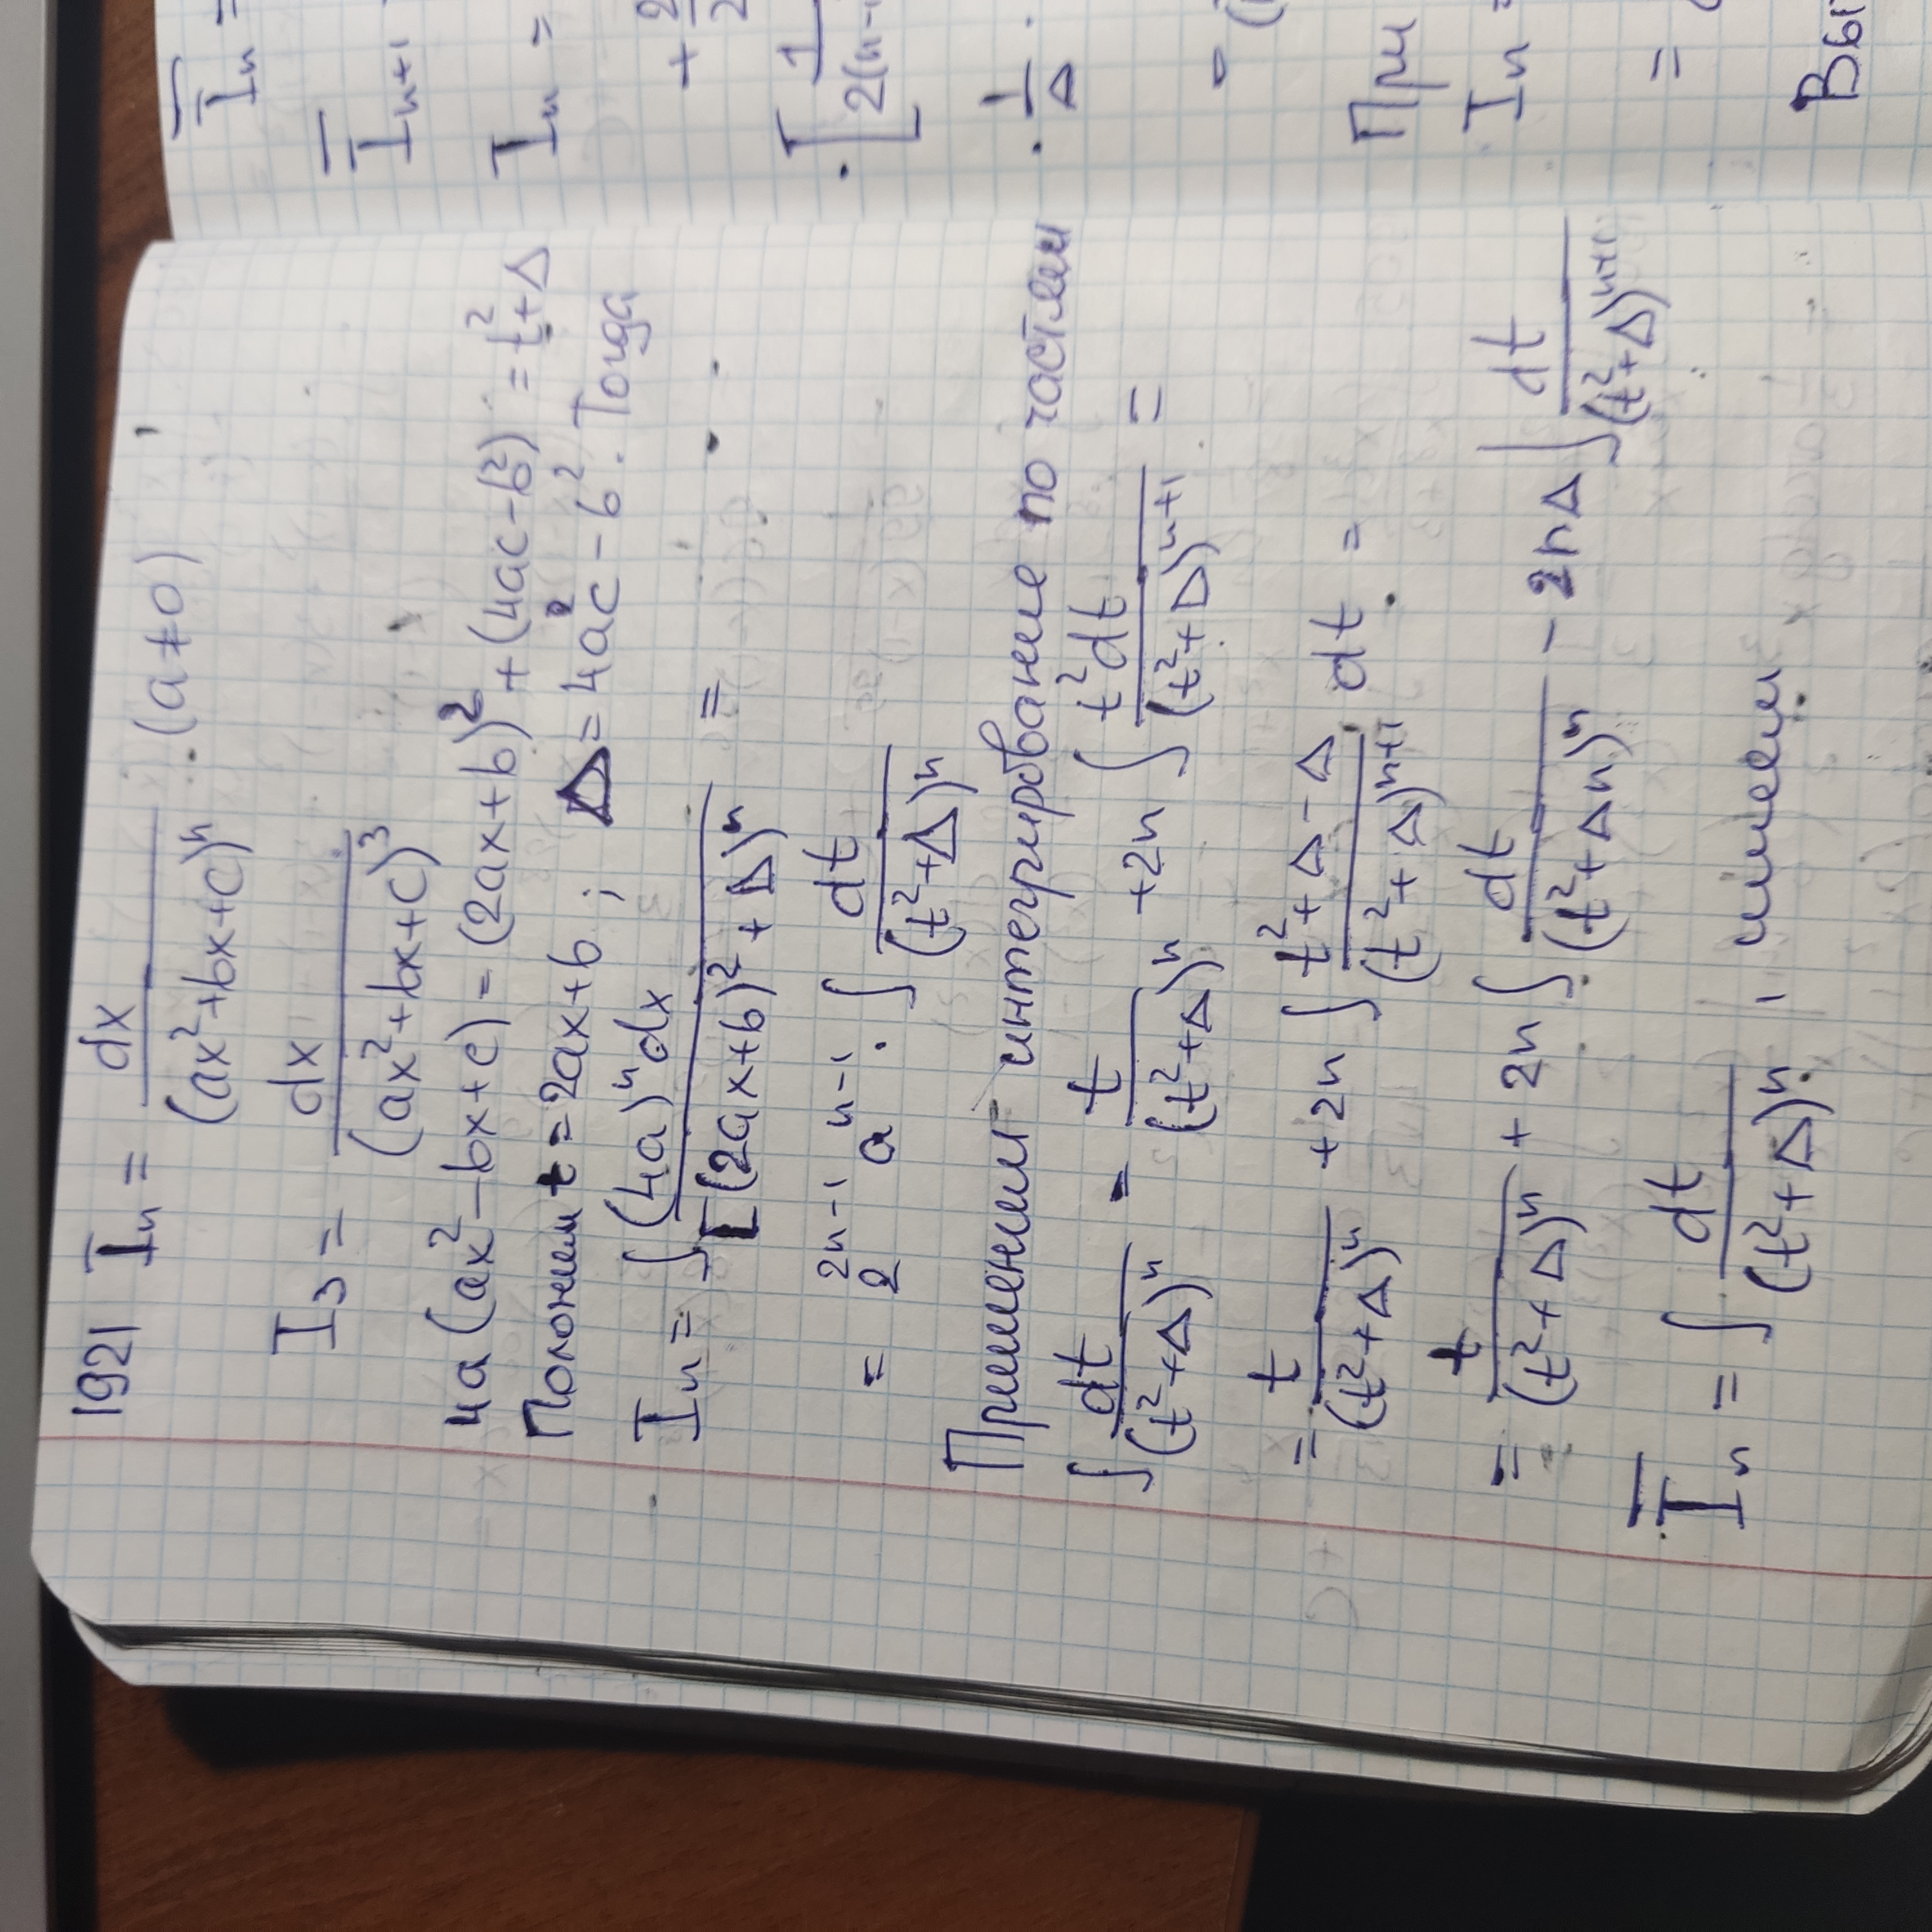 1921 Iₙ = dx/(ax²+bx+c)ⁿ (a≠0)
I₃ = dx/(ax²+bx+c)³
4a(ax²-bx+c) = (2ax+b)²+(4ac-b²) = t²+Δ
Положим t=2ax+b ; Δ=4ac-b². Тогда
Iₙ = ∫(4a)ⁿdx/[(2ax+b)²+Δ)ⁿ =
= 2²ⁿ⁻¹ aⁿ⁻¹ · ∫dt/(t²+Δ)ⁿ
Применим интегрирование по частям
∫dt/(t²+Δ)ⁿ = t/(t²+Δ)ⁿ +2n ∫t²dt/(t²+Δ)ⁿ⁺¹ =
= t/(t²+Δ)ⁿ +2n ∫(t²+Δ-Δ)/(t²+Δ)ⁿ⁺¹ dt =
= t/(t²+Δ)ⁿ + 2n ∫dt/(t²+Δn)ⁿ - 2nΔ ∫dt/(t²+Δ)ⁿ⁺¹
I̅ₙ = ∫dt/(t²+Δ)ⁿ, имеем
I̅ₙ =
I̅ₙ₊₁
Iₙ =
+ 2
·[1/2(n-1
· 1/Δ ·
= (
При
Iₙ =
=